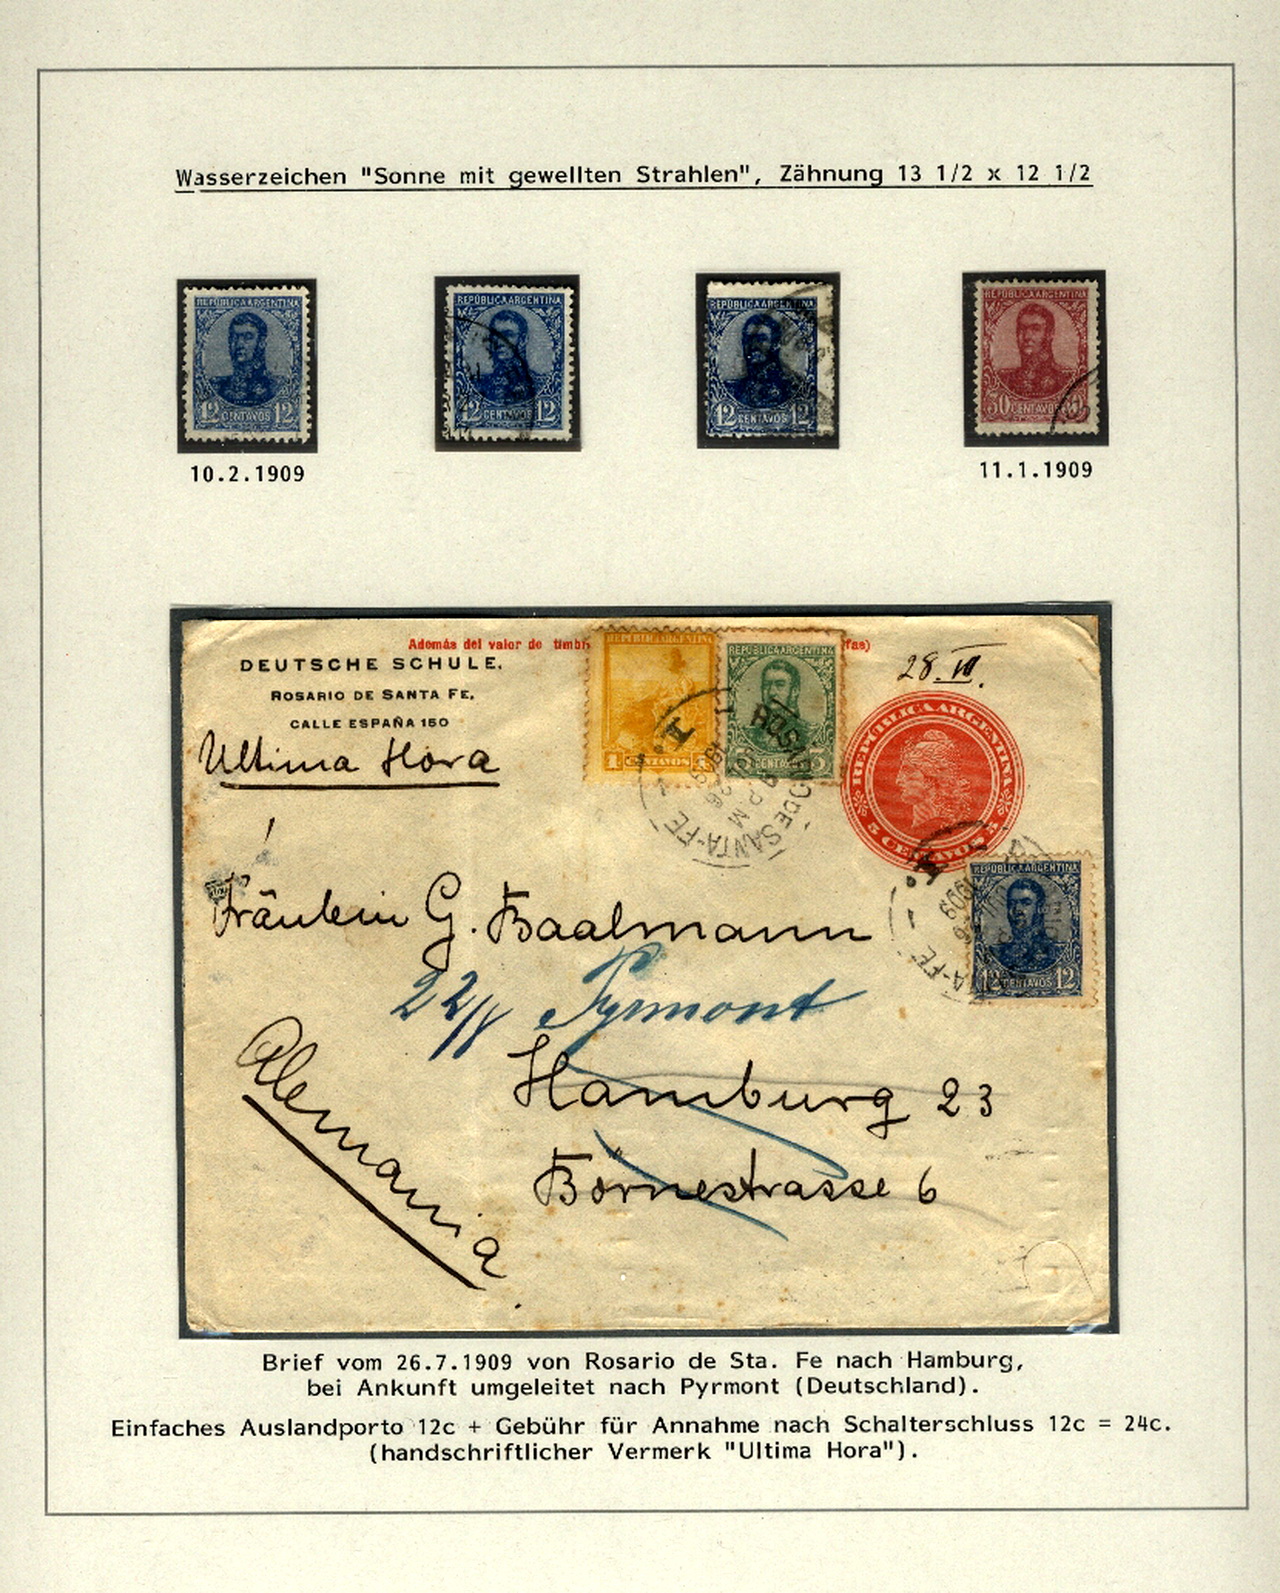 Wasserzeichen "Sonne mit gewellten Strahlen", Zähnung 13 1/2 x 12 1/2
REPÚBLICA ARGENTINA
12 CENTAVOS 12
REPÚBLICA ARGENTINA
12 CENTAVOS 12
REPÚBLICA ARGENTINA
12 CENTAVOS 12
REPÚBLICA ARGENTINA
50 CENTAVOS
10.2.1909
11.1.1909
Además del valor de timbr
fas)
DEUTSCHE SCHULE.
ROSARIO DE SANTA FE.
CALLE ESPAÑA 150
Ultima Hora
28. VII.
REPUBLICA ARGENTINA
1 CENTAVOS 1
REPÚBLICA ARGENTINA
CENTAVOS 3
REPUBLICA ARGENTINA
5 CENTAVOS 5
ROSARIO DE SANTA-FE
1909
26
PM
REPÚBLICA ARGENTINA
12 CENTAVOS 12
A-FE
1909
Fräulein G. Baalmann
22/8 Pyrmont
Hamburg 23
Börnestrasse 6
Alemania
Brief vom 26.7.1909 von Rosario de Sta. Fe nach Hamburg,
bei Ankunft umgeleitet nach Pyrmont (Deutschland).
Einfaches Auslandporto 12c + Gebühr für Annahme nach Schalterschluss 12c = 24c.
(handschriftlicher Vermerk "Ultima Hora").